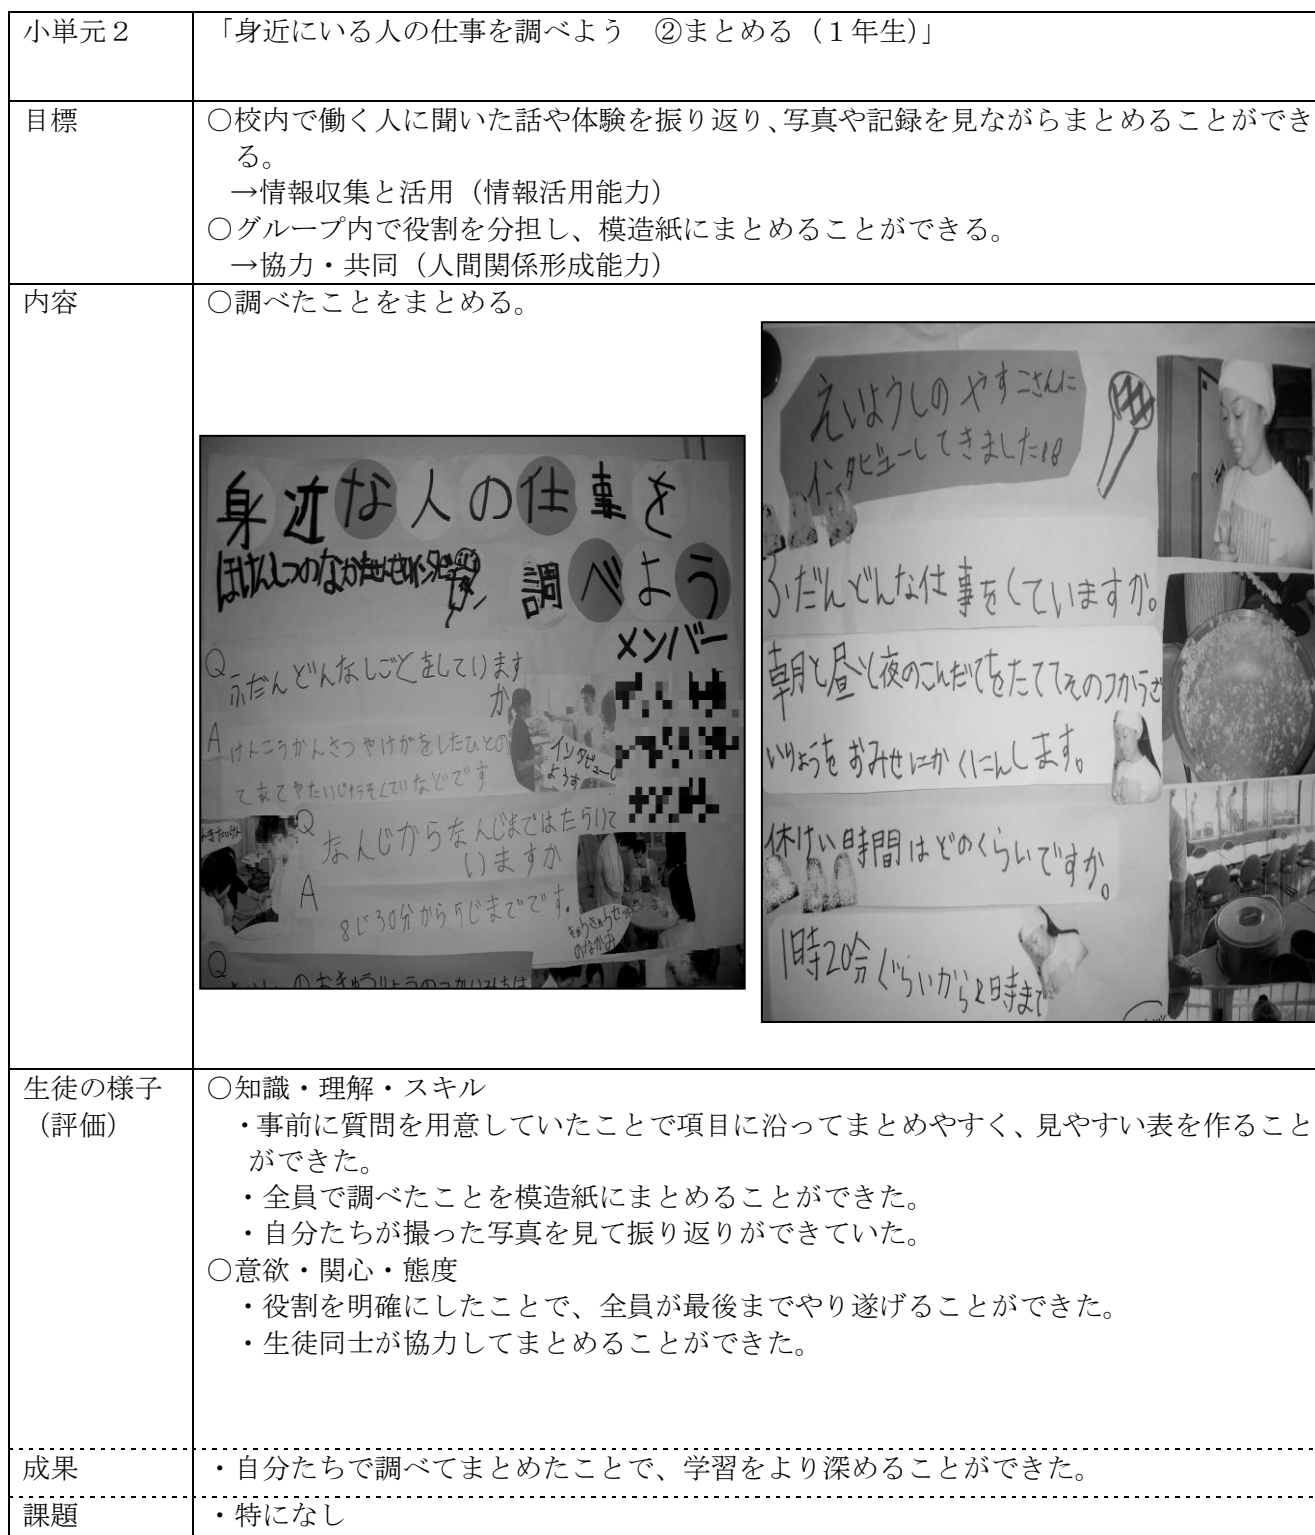 小単元２
「身近にいる人の仕事を調べよう　②まとめる（１年生）」
目標
○校内で働く人に聞いた話や体験を振り返り、写真や記録を見ながらまとめることができ
る。
→情報収集と活用（情報活用能力）
○グループ内で役割を分担し、模造紙にまとめることができる。
→協力・共同（人間関係形成能力）
内容
○調べたことをまとめる。
身近な人の仕事を
調べよう
メンバー
Q
ふだんどんなしごとをしています
か
A
けんこうかんさつやけがをしたひとの
インタビューの
ようす
Q
なんじからなんじまではたらいて
いますか
A
8じ30分から5じまでです。
のなかみ
Q
えいようしのやすこさんに
インタビューしてきました
ふだんどんな仕事をしていますか。
朝と昼と夜のこんだてをたててそのつかうざ
いりょうをおみせにかくにんします。
休けい時間はどのくらいですか。
1時20分ぐらいから2時まで
生徒の様子
（評価）
○知識・理解・スキル
・事前に質問を用意していたことで項目に沿ってまとめやすく、見やすい表を作ること
ができた。
・全員で調べたことを模造紙にまとめることができた。
・自分たちが撮った写真を見て振り返りができていた。
○意欲・関心・態度
・役割を明確にしたことで、全員が最後までやり遂げることができた。
・生徒同士が協力してまとめることができた。
成果
・自分たちで調べてまとめたことで、学習をより深めることができた。
課題
・特になし